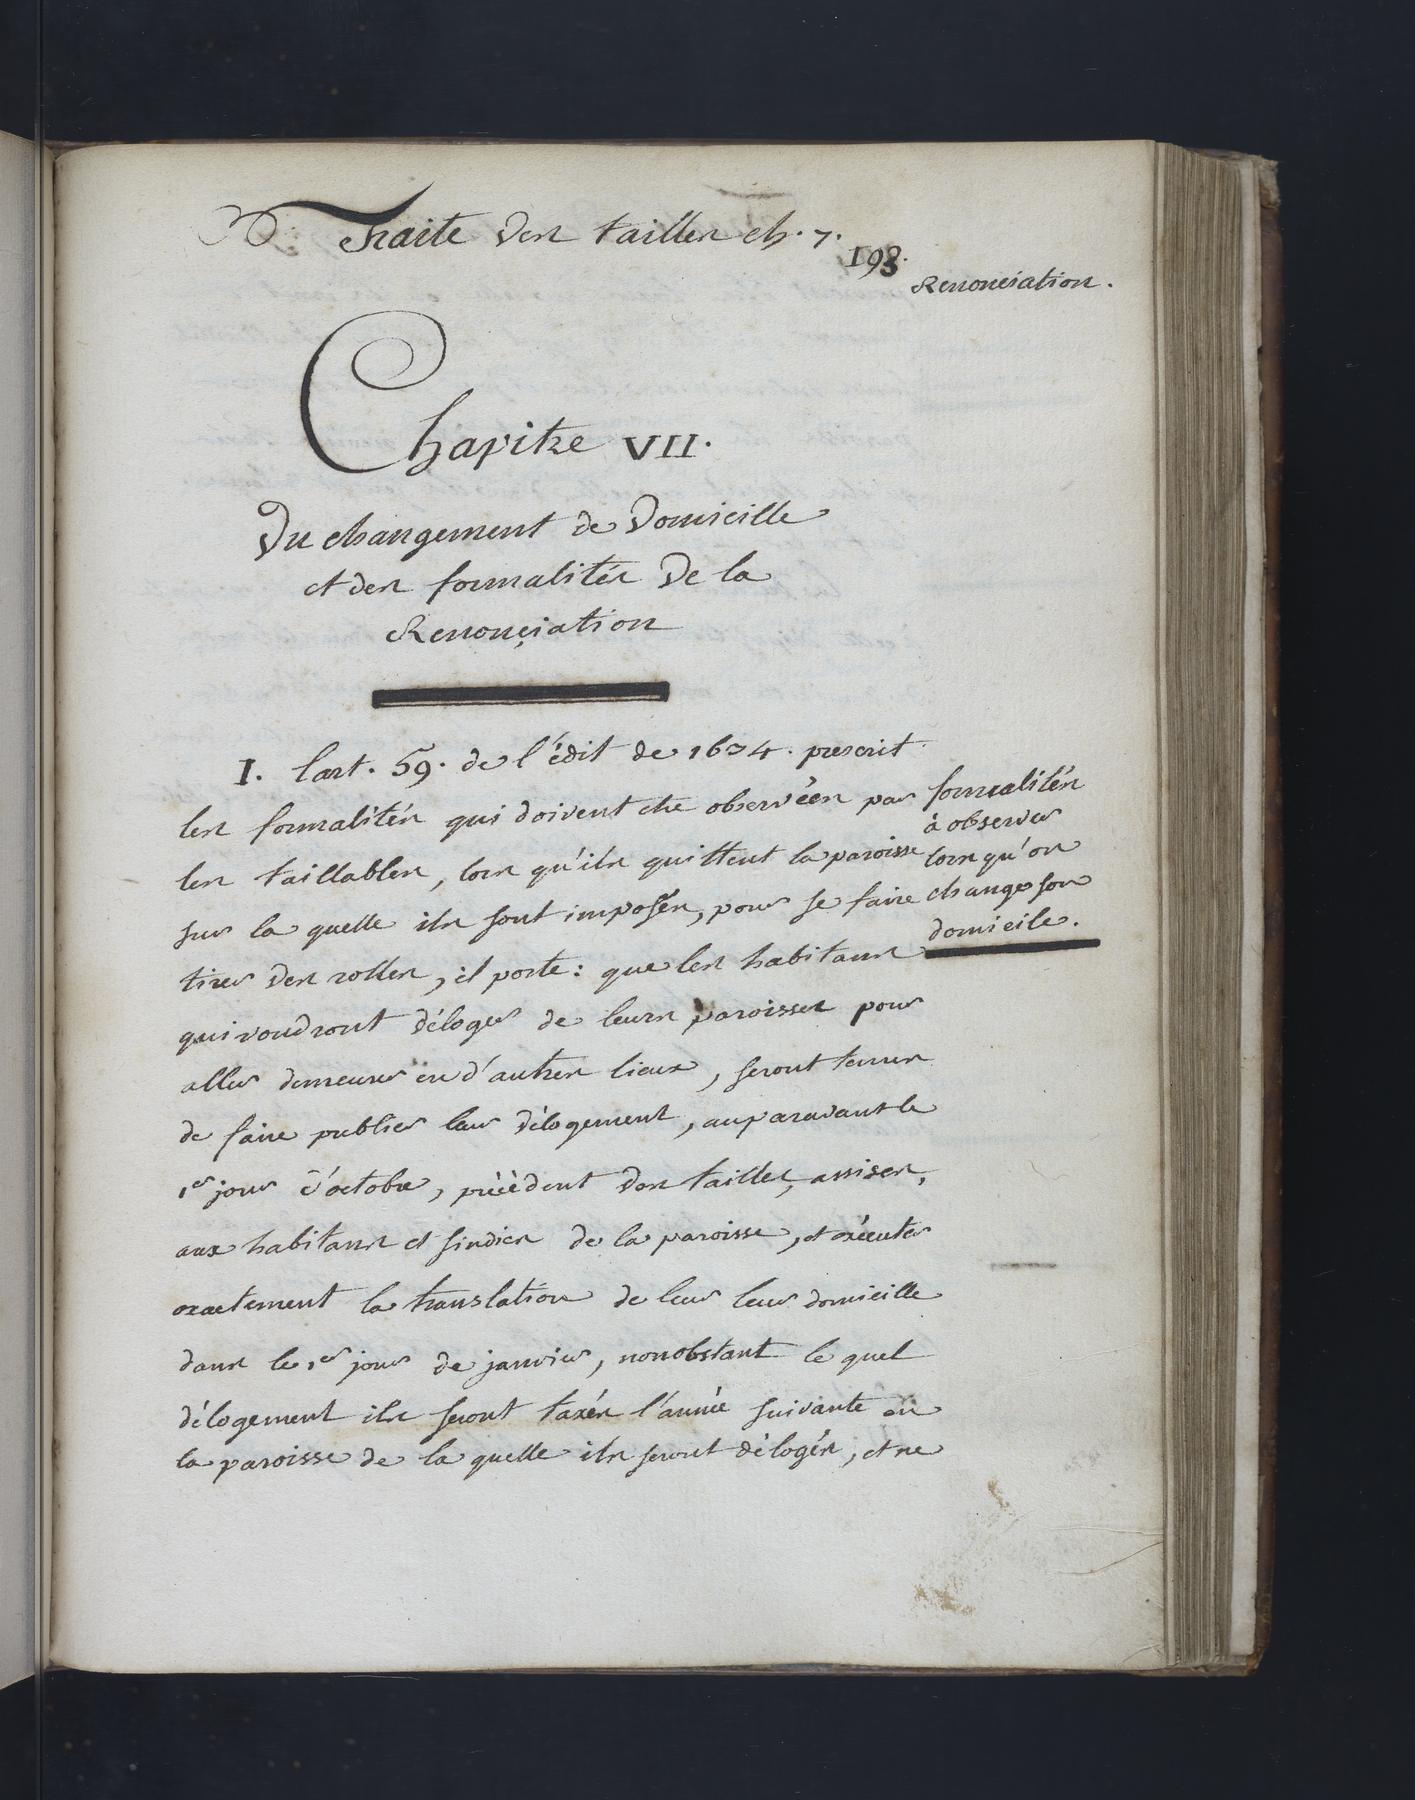 Traite des tailles ch. 7.
193.
Renonciation.
Chapitre VII.
Du changement de Domicille
et des formalités De la
Renonciation
I. lart. 59. de l'édit de 1634. prescrit
les formalités qui doivent etre observées par
les taillables, lors qu'ils quittent la paroisse
sur la quelle ils sont imposés, pour se faire
tirer des rolles, il porte: que les habitans
qui voudront déloger de leurs paroisses pour
aller demeurer en d'autres lieux, seront tenus
de faire publier leur délogement, auparavant le
1er jour d'octobre, précèdent des tailles, assises,
aux habitans et sindics de la paroisse, et exécuter
exactement la translation de leur leur domicille
dans le 1er jour de janvier, nonobstant le quel
délogement ils seront taxés l'année suivante en
la paroisse de la quelle ils seront délogés, et ne
formalités
à observer
lors qu'on
change son
domicile.